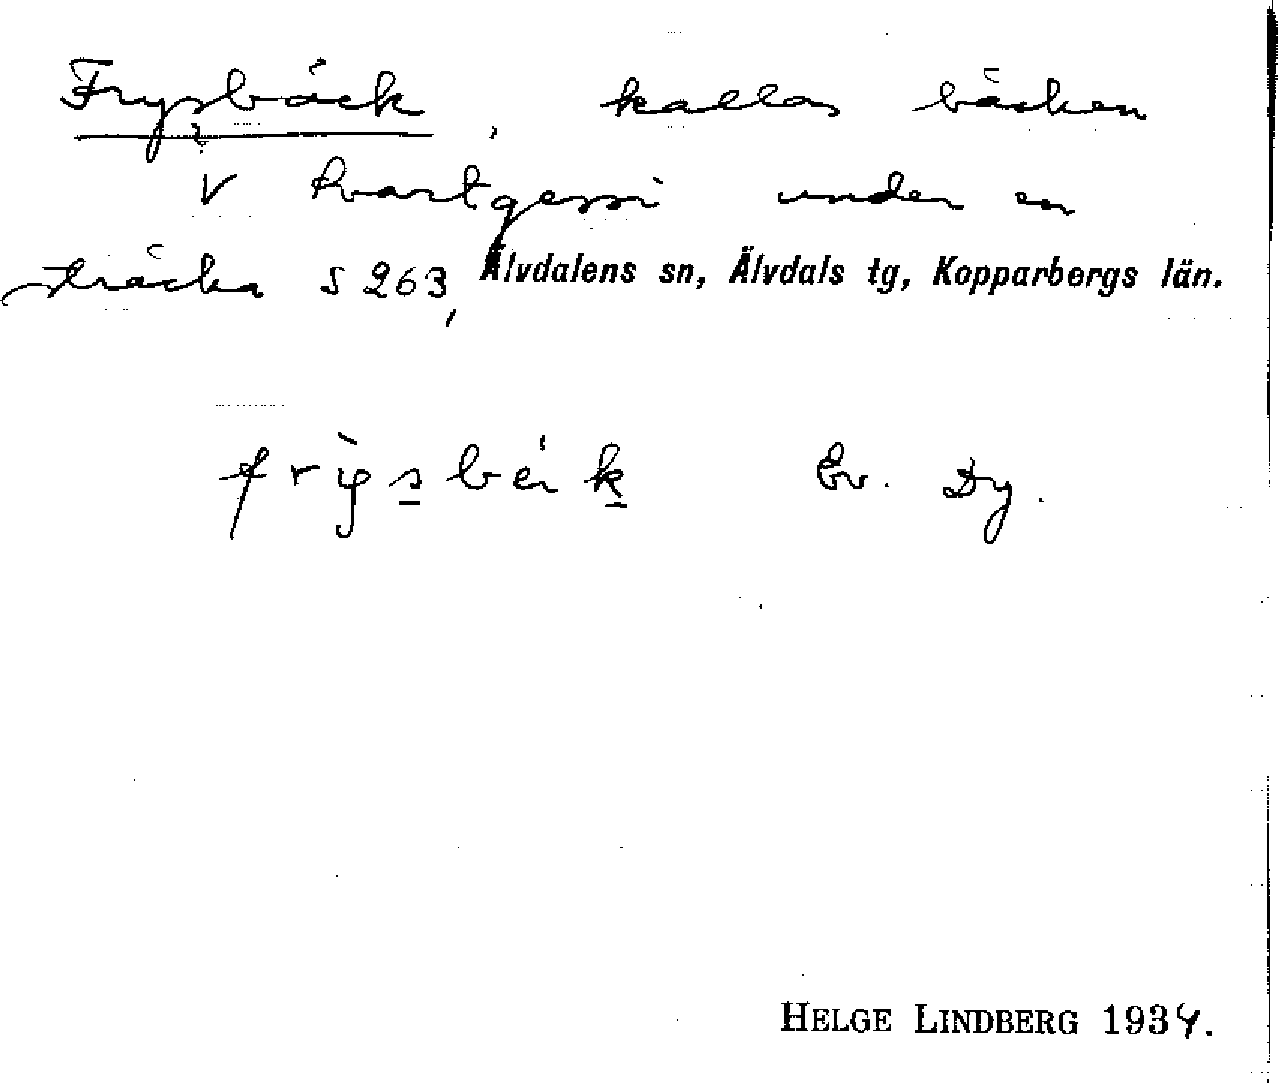 Frysbäck, kallas bäcken
V Kvartgessi under en
sträcka S 263, Älvdalens sn, Älvdals tg, Kopparbergs län.
Ev. Dy.
HELGE LINDBERG 1934.